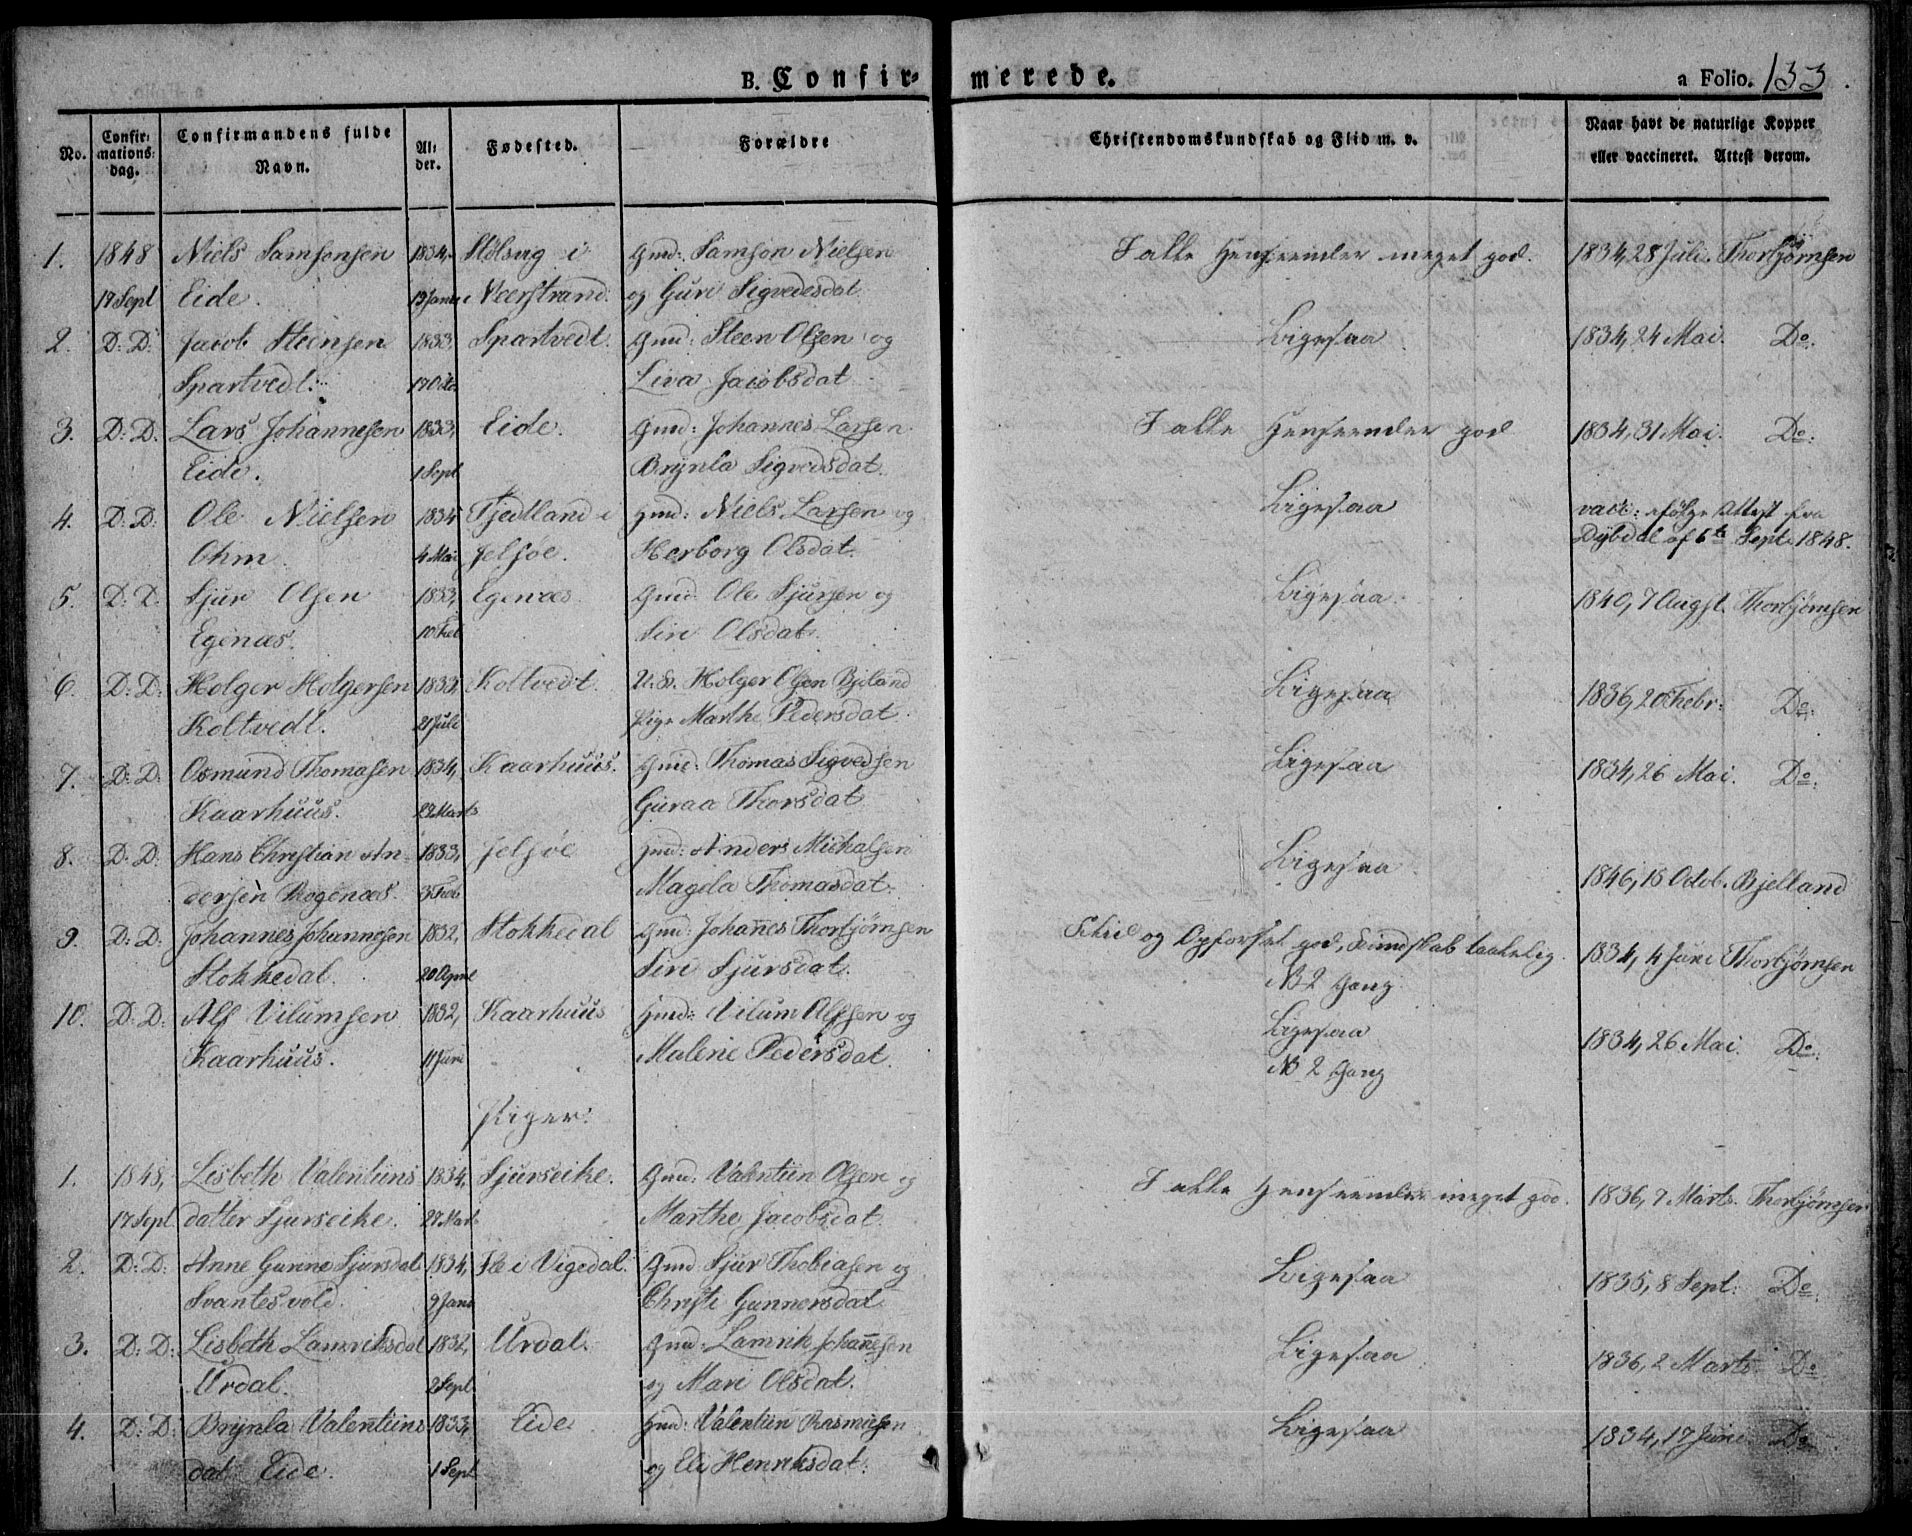 B. Confir-
merede.
a Folio. 133
No.
Confir-
mations-
dag.
Confirmandens fulde
Navn.
Al-
der.
Fødested.
Forældre
Christendomskundskab og Flid m. v.
Naar havt de naturlige Kopper
eller vaccineret. Attest derom.
1. 1848 Niels Samsonsen 1834, Stølsvig i Gmd: Samson Nielsen I alle Henseender meget god. 1834, 28 Juli. Thorbjørnsen
17 Sept Eide. 13 Janu. Neerstrand. og Guri Sigvedsdat
2. D: D: Jacob Steensen 1833, Spartvedt. Gmd: Steen Olsen og Ligesaa 1834, 24 Mai. Do:
Spartvedt. 17 Liva Jacobsdat
3. D: D. Lars Johannesen 1833, Eide. Gmd: Johannes Larsen I alle Henseender god 1834, 31 Mai. Do:
Eide. 1 Sept Brynla Sigvedsdat.
4. D: D: Ole Nielsen 1834 Tjedtland i Gmd: Niels Larsen og Ligesaa vacc: ifølge Attest fra
Ohm. 4 Mai Jelsøe. Herborg Olsdat. Dybdal af 6te Sept. 1848.
5. D: D. Sjur Olsen 1833, Egenæs Gmd Ole Sjursen og Ligesaa. 1840, 7 Augst. Thorbjørnsen
Egenæs. 10 Feb Siri Olsdat.
6. D: D: Holger Holgersen 1833, Koltvedt. U. S. Holger Olsen Bjeland Ligesaa 1836, 20 Febr: Do:
Koltvedt. 21 Juli Pige Marthe Pedersdat.
7. D: D. Osmund Thomasen 1834, Kaarhuus. Gmd: Thomas Sigvedsen Ligesaa 1834, 26 Mai. Do:
Kaarhuus. 29 Marts Guraa Thorsdat
8. D: D. Hans Christian An- 1833, Jelsøe Gmd: Anders Michalsen Ligesaa 1846, 15 Octob. Bjelland
dersen Rogenæs. 3 Feb Magela Thomasdat.
9. D: D: Johannes Johannesen 1832, Stokkedal Gmd: Johañes Thorbjørnsen Flid og Opførsel god, Kundskab taalelig. 1834, 4 Juni Thorbjørnsen
Stokkedal. 20 April Siri Sjursdat. NB 2 Gang
10. D: D: Alf Vilumsen 1832, Kaarhuus Gmd: Vilum Alfsen og Ligesaa 1834, 26 Mai. Do:
Kaarhuus. 11 Juni Malene Pedersdat. NB 2 Gang
Piger:
1. 1848, Lisbeth Valentiins 1834, Sjurseike. Gmd: Valentiin Olsen og I alle Henseender meget god. 1836, 7 Marts. Thorbjørnsen
17 Sept. datter Sjurseike. 27 Mart Marthe Jacobsdat.
2. D: D: Anne Gunne Sjursdat 1834, i Vigedal. Gmd Sjur Thobiasen og Ligesaa 1835, 8 Sept: Do:
Svantesvold. 9 Janu Christi Gunnersdat
3. D: D: Lisbeth Lamriksdat 1832, Urdal. Gmd: Lamrik Johañesen Ligesaa 1836, 2 Marts Do
Urdal. 2 Sept. og Mari Olsdat.
4. D: D: Brynla Valentiins 1833, Eide Gmd: Valentiin Rasmusen Ligesaa 1834, 17 Juni Do
dat Eide. 1 Sept og Eli Henriksdat.